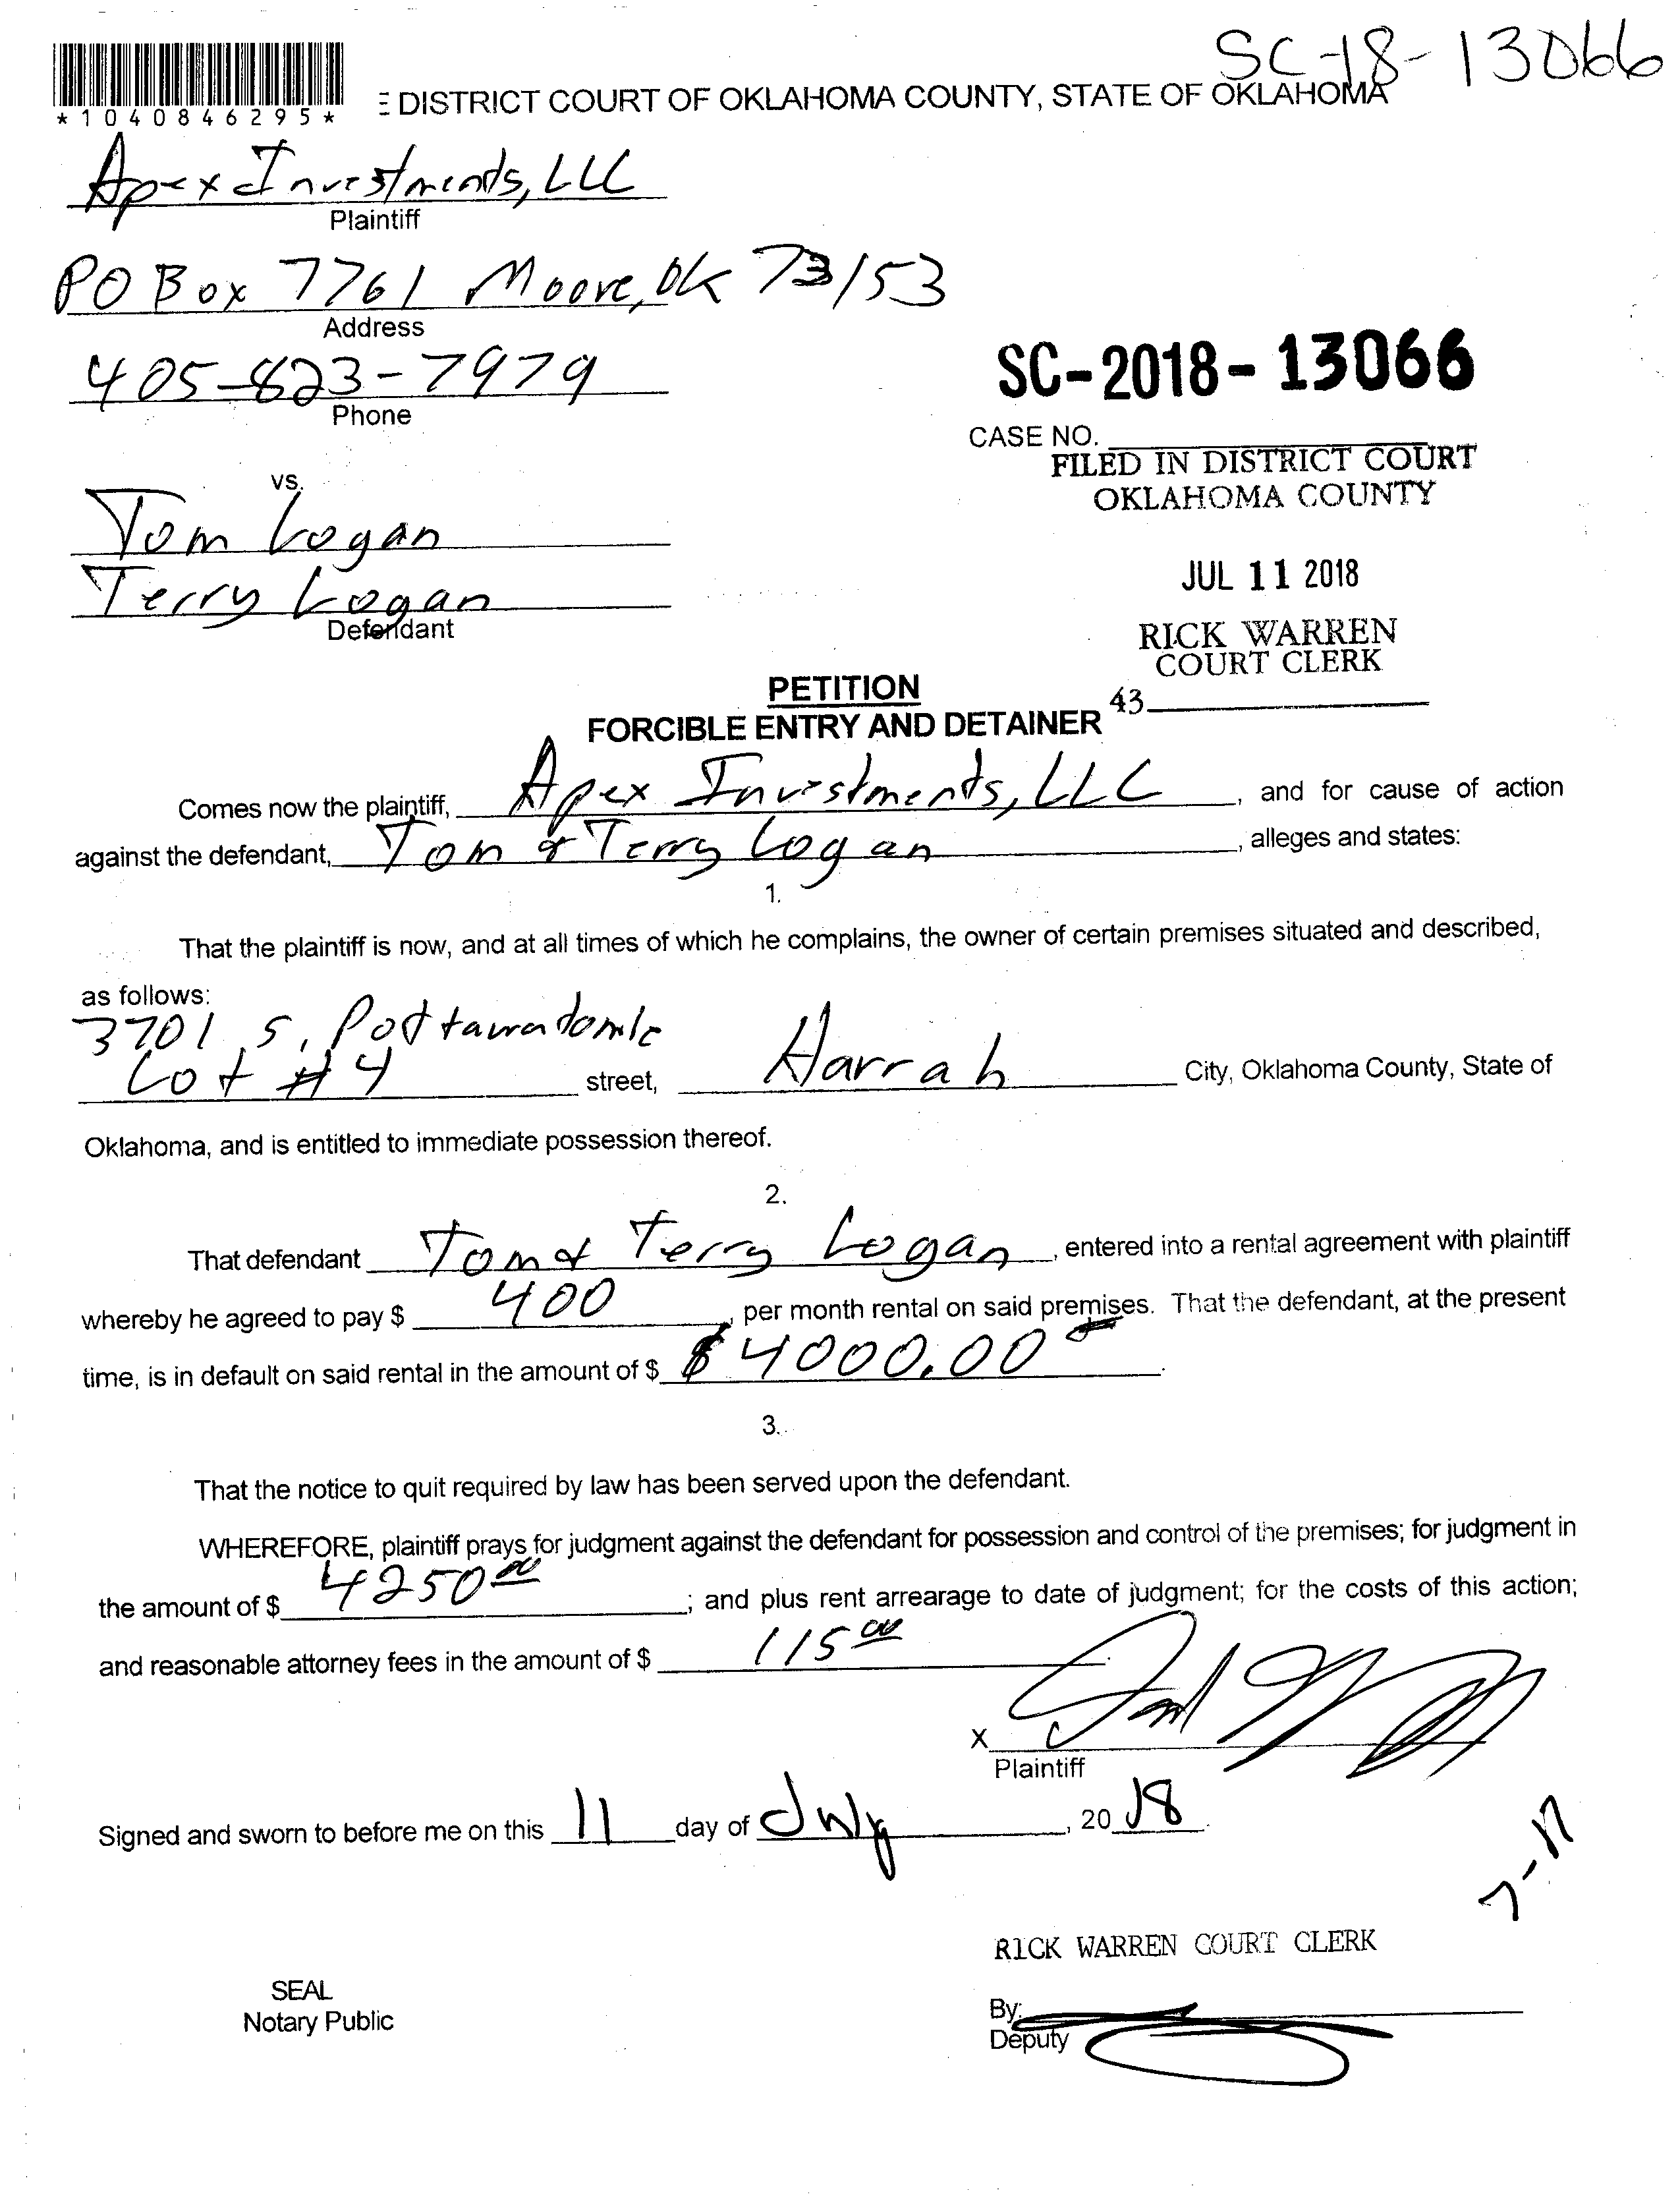 SC-18-13066
*1040846295*
E DISTRICT COURT OF OKLAHOMA COUNTY, STATE OF OKLAHOMA
Apex Investments, LLC
Plaintiff
PO Box 7761 Moore, OK 73153
Address
405-823-7979
Phone
SC-2018-13066
CASE NO.
FILED IN DISTRICT COURT
OKLAHOMA COUNTY
vs.
Tom Logan
Terry Logan
Defendant
JUL 11 2018
RICK WARREN
COURT CLERK
43
PETITION
FORCIBLE ENTRY AND DETAINER
Comes now the plaintiff, Apex Investments, LLC, and for cause of action
against the defendant, Tom & Terry Logan, alleges and states:
1.
That the plaintiff is now, and at all times of which he complains, the owner of certain premises situated and described,
as follows:
3701 S. Pottawatomie
Lot #4 street, Harrah City, Oklahoma County, State of
Oklahoma, and is entitled to immediate possession thereof.
2.
That defendant Tom & Terry Logan, entered into a rental agreement with plaintiff
whereby he agreed to pay $ 400, per month rental on said premises. That the defendant, at the present
time, is in default on said rental in the amount of $ $4000.00.
3.
That the notice to quit required by law has been served upon the defendant.
WHEREFORE, plaintiff prays for judgment against the defendant for possession and control of the premises; for judgment in
the amount of $ 4250 00; and plus rent arrearage to date of judgment; for the costs of this action;
and reasonable attorney fees in the amount of $ 115 00.
X
Plaintiff
Signed and sworn to before me on this 11 day of July, 2018.
7-17
RICK WARREN COURT CLERK
SEAL
Notary Public
By:
Deputy